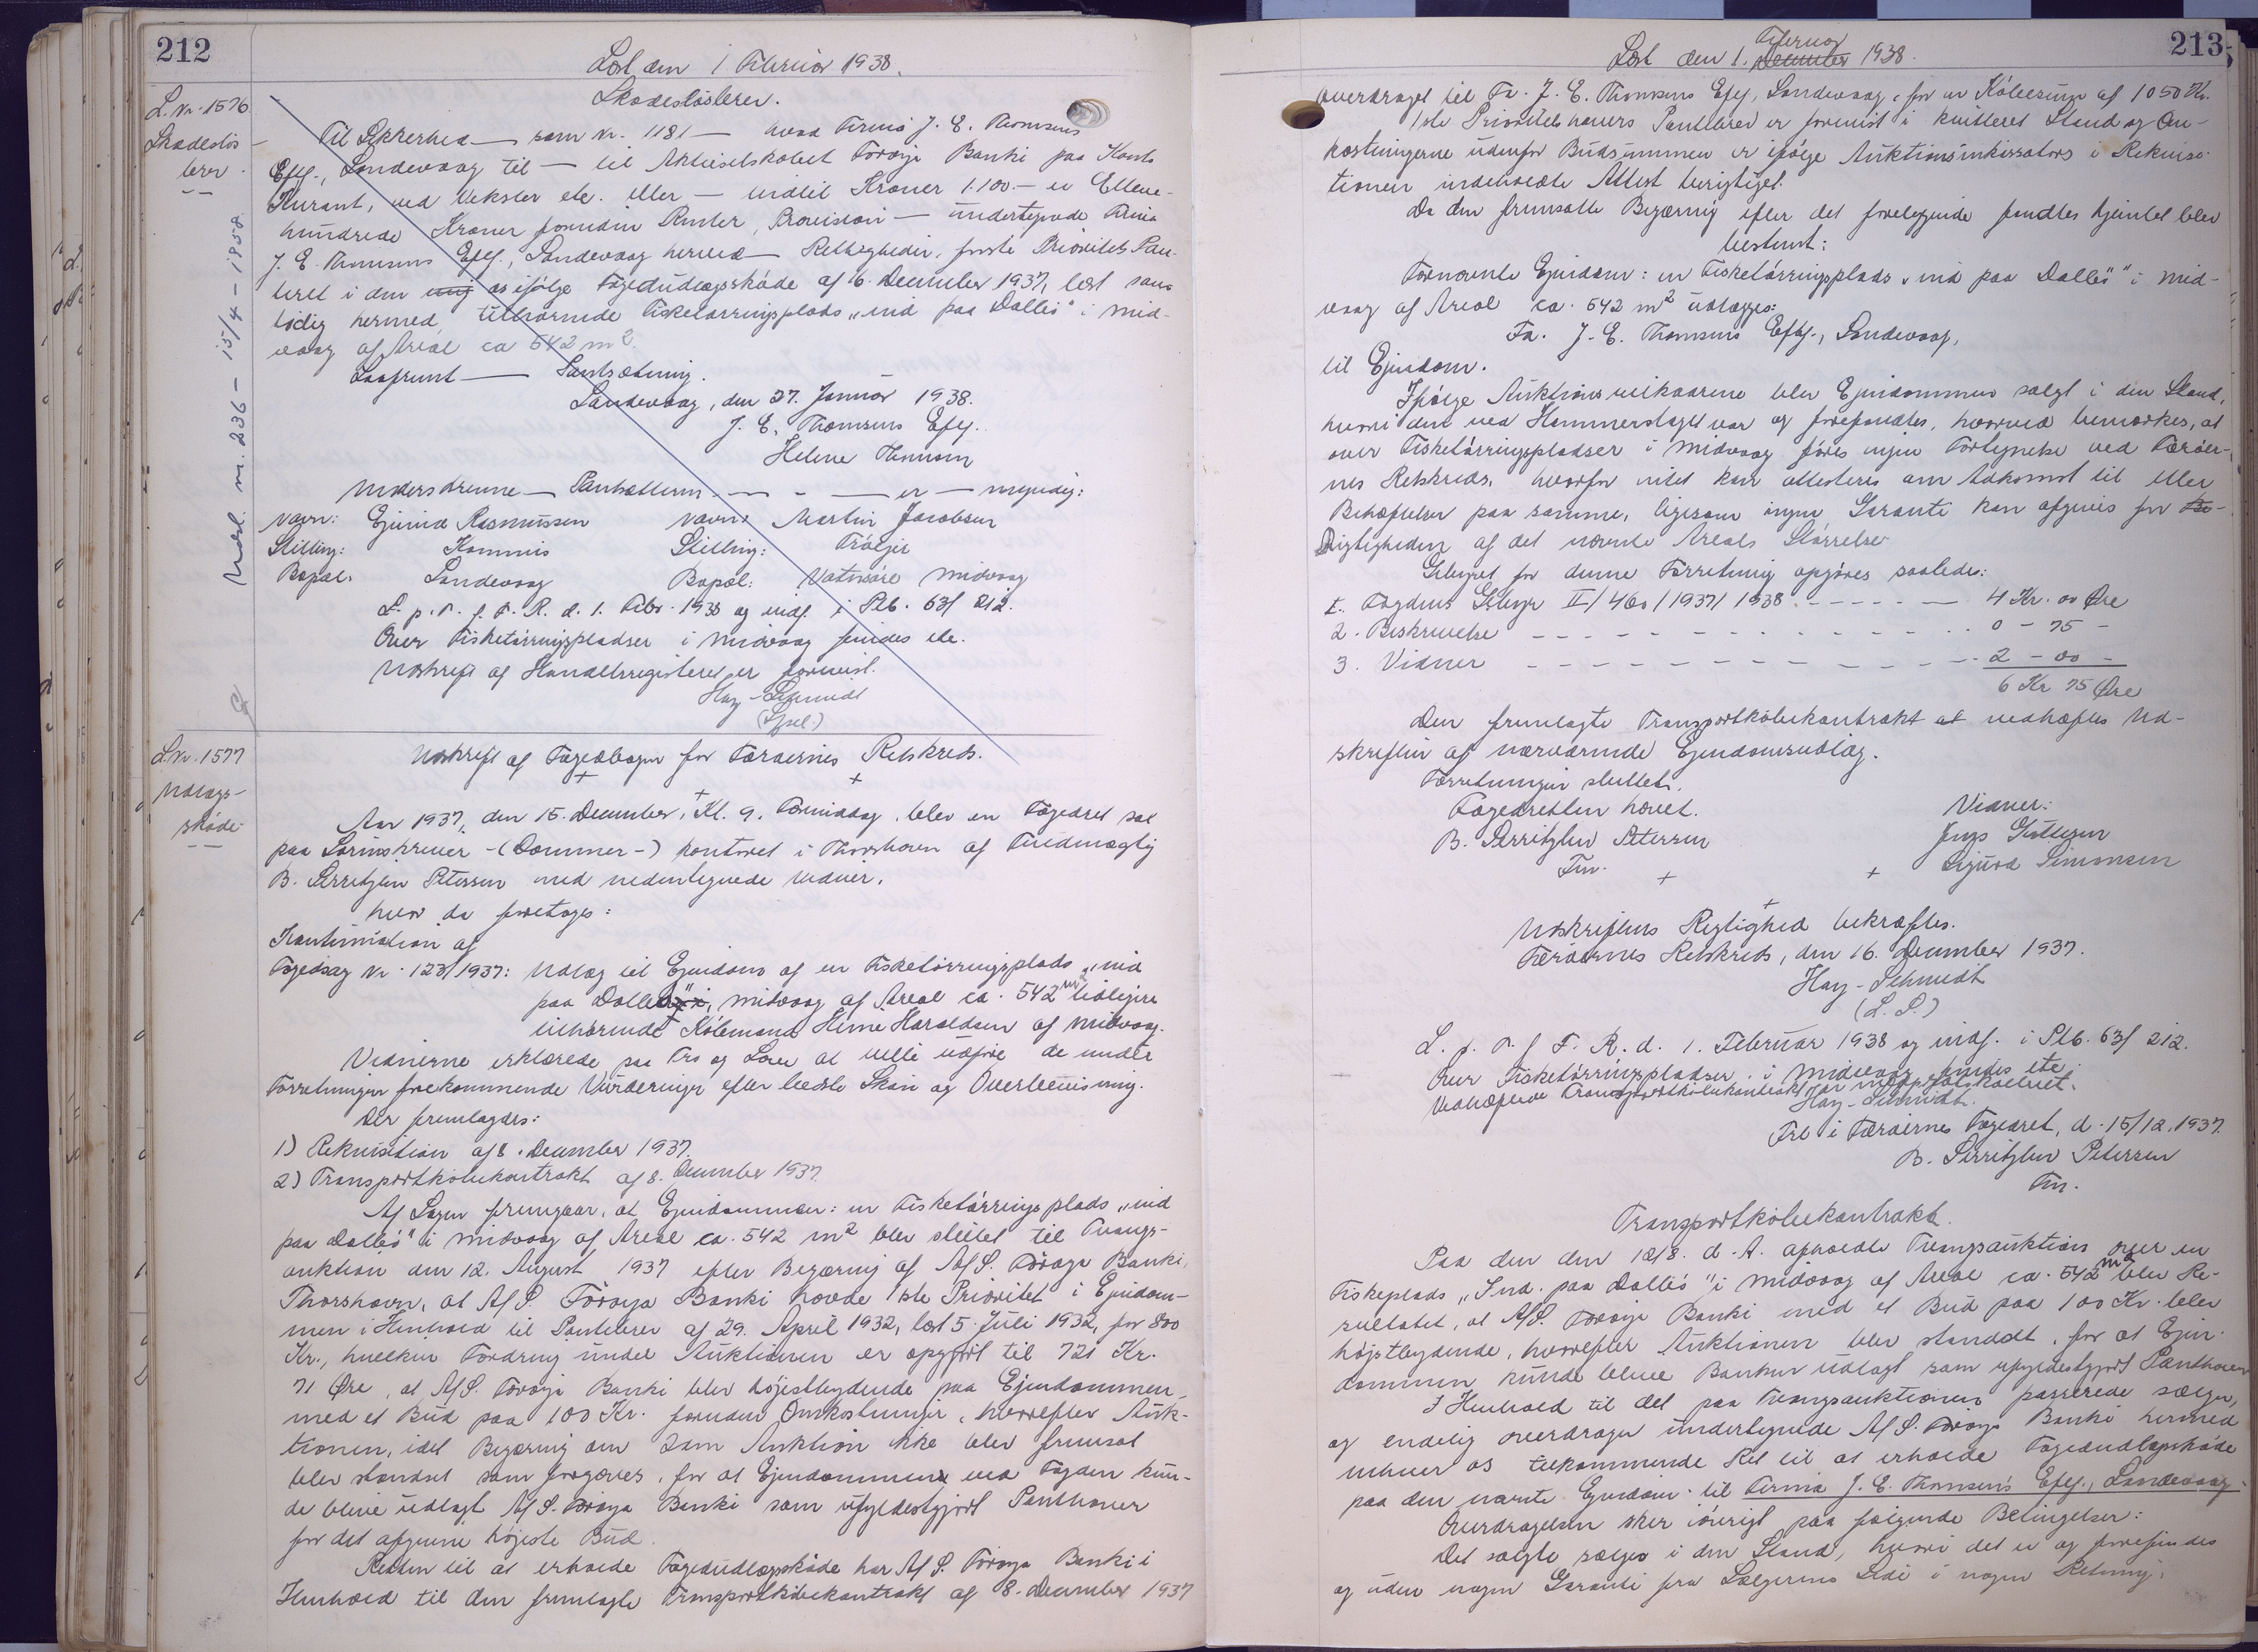 212
Læst den 1 Februar 1938.
L. Nr. 1576
Skadesløs-
brev.
Udsl. m. 236 - 15/4 - 1950.
Skadesløsbrev.
Til Sikkerhed — som Nr. 1181 — hvad Firma J. E. Thomsens
Eftf., Sandevaag til — til Aktieselskabet Føroya Banki paa Konto
Kurant, ved Veksler etc. eller — indtil Kroner 1.100.— er Elleve-
hundrede Kroner foruden Renter, Provision — undertegnede Firma
J. E. Thomsens Eftf., Sandevaag herved — Rettigheder, første Prioritets Pan-
teret i den mig os ifølge Fogedudlægsskøde af 16. December 1937, læst sam-
tidig hermed, tilhørende Fisketørringsplads „ind paa Dallið" i Mid-
vaag af Areal ca 542 m².
Saafremt — Pantsætning.
Sandevaag, den 27. Januar 1938.
J. E. Thomsens Eftf.
Helene Thomsen
Underskrevne — Panthaveren — — er — myndig:
Navn: Ejvind Rasmussen Navn: Martin Jacobsen
Stilling: Kommis Stilling:
Bopæl: Sandevaag Bopæl: Midvaag
L. p. T. f. F. R. d. 1. Febr. 1938 og indf. i Ptb. 63/212.
Over Fisketørringspladser i Midvaag findes etc.
Udskrift af Handelsregisteret er forevist.
Hay-Schmidt
L. Nr. 1577
Udlægs-
skøde
Udskrift af Fogedbogen for Færøernes Retskreds.
Aar 1937, den 15. December, Kl. 9. Formiddag, blev en Fogedret sat
paa Sorenskriver-(Dommer-) kontoret i Thorshavn af Fuldmægtig
B. Serritzlev Petersen med nedentegnede Vidner,
hvor da foretoges:
Kontinuation af
Fogedsag Nr. 123/1937: Udlæg til Ejendom af en Fisketørringsplads „ind
paa Dallið" i Midvaag af Areal ca. 542 m² tidligere
tilhørende Købmand Heine Haraldsen af Midvaag.
Vidnerne erklærede paa Tro og Love at ville udføre de under
Forretningen forekommende Vurderinger efter bedste Skøn og Overbevisning.
Der fremlagdes:
1) Rekvisition af 8. December 1937.
2) Transportkøbekontrakt af 8. December 1937.
Af Sagen fremgaar, at Ejendommen: en Fisketørringsplads „ind
paa Dallið" i Midvaag af Areal ca. 542 m² blev stillet til Tvangs-
auktion den 12. August 1937 efter Begæring af A/S. Føroya Banki,
Thorshavn, at A/S. Føroya Banki havde 1ste Prioritet i Ejendom-
men i Henhold til Pantebrev af 29. April 1932, læst 5. Juli 1932, for 800
Kr., hvilken Fordring under Auktionen er opgjort til 721 Kr.
71 Øre, at A/S. Føroya Banki blev højestbydende paa Ejendommen
med et Bud paa 100 Kr. foruden Omkostninger, hvorefter Auk-
tionen, idet Begæring om 2den Auktion ikke blev fremsat
blev standset som forgæves, for at Ejendommen ved Fogden kun-
de blive udlagt A/S. Føroya Banki som ufyldestgjort Panthaver
for det afgivne højeste Bud.
Retten til at erholde Fogedudlægsskøde har A/S. Føroya Banki i
Henhold til den fremlagte Transportkøbekontrakt af 8. December 1937
213
Læst den 1. December Februar 1938.
overdraget til Fa. J. E. Thomsens Eftf., Sandevaag, for en Købesum af 1050 Kr.
1ste Prioritetshavers Pantebrev er forevist i kvitteret Stand og Om-
kostningerne udenfor Budsummen er ifølge Auktionsinkassators i Rekvisi-
tionen indeholdte Attest berigtiget.
Da den fremsatte Begæring efter det foreliggende fandtes hjemlet blev
bestemt:
Fornævnte Ejendom: en Fisketørringsplads „ind paa Dallið" i Mid-
vaag af Areal ca. 542 m² udlægges:
Fa. J. E. Thomsens Eftf., Sandevaag,
til Ejendom.
Ifølge Auktionsvilkaarene blev Ejendommen solgt i den Stand,
hvori den ved Hammerslaget var og forefandtes, hvorved bemærkes, at
over Fisketørringspladser i Midvaag føres ingen Fortegnelse ved Færøer-
nes Retskreds, hvorfor intet kan attesteres om Adkomst til eller
Behæftelser paa samme, ligesom ingen Garanti kan afgives for Be-
Rigtigheden af det nævnte Areals Størrelse.
Gebyret for denne Forretning opgøres saaledes:
1. Fogdens Gebyr II/460/1937/1938 - - - - - 4 Kr. 00 Øre
2. Beskrivelse - - - - - - - - - - - 0 - 75 -
3. Vidner - - - - - - - - - - - - 2 - 00 -
6 Kr 75 Øre
Den fremlagte Transportkøbekontrakt at vedhæftes Ud-
skriften af nærværende Ejendomsudlæg.
Forretningen sluttet.
Fogedretten hævet.
Vidner:
B. Serritzlev Petersen
Fm.
Sigurd Simonsen
Udskriftens Rigtighed bekræftes.
Færøernes Retskreds, den 16. December 1937.
Hay-Schmidt
(L. S.)
L. p. T. f. F. R. d. 1. Februar 1938 og indf. i Ptb. 63/212.
Over Fisketørringspladser i Midvaag findes etc
Vedhæftede Transportkøbekontrakt
Hay-Schmidt.
Frl. i Færøernes Fogedret, d. 15/12.1937.
B. Serritzlev Petersen
Fm.
Transportkøbekontrakt.
Paa den den 12/8. d. A. afholdte Tvangsauktion over en
Fiskeplads „Ind. paa Dallið" i Midvaag af Areal ca. 542 m² blev Re-
sultatet, at A/S. Føroya Banki med et Bud paa 100 Kr. blev
højstbydende, hvorefter Auktionen blev standset, for at Ejen-
dommen kunde blive Banken udlagt som ufyldestgjort Panthaver
I Henhold til det paa Tvangsauktionen passerede sælger,
og endelig overdrager undertegnede A/S. Føroya Banki hermed
enhver os tilkommende Ret til at erholde Fogedudlægsskøde
paa den nævnte Ejendom til Firma J. E. Thomsen's Eftf., Sandevaag.
Overdragelsen sker iøvrigt paa følgende Betingelser:
Det solgte sælges i den Stand, hvori det er og forefindes
og uden nogen Garanti fra Sælgerens Side i nogen Retning.